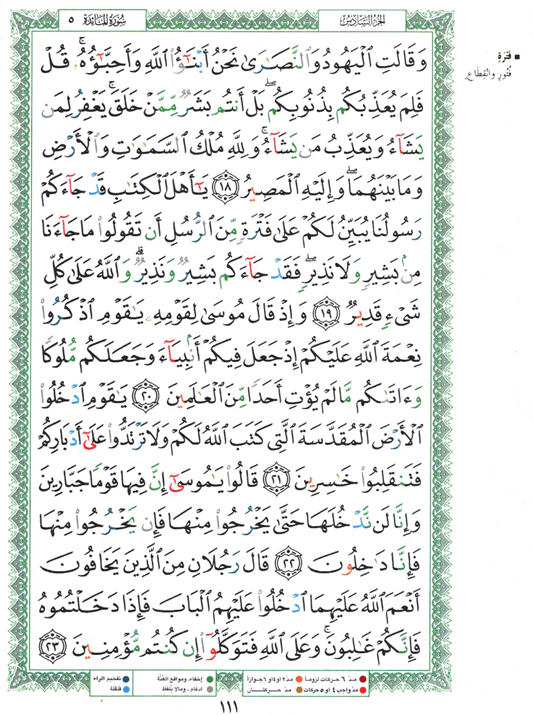 الجزء السادس
سورة المائدة ٥
وَقَالَتِ الْيَهُودُ وَالنَّصَارَىٰ نَحْنُ أَبْنَاؤُا اللَّهِ وَأَحِبَّاؤُهُ ۚ قُلْ
فَلِمَ يُعَذِّبُكُم بِذُنُوبِكُم ۖ بَلْ أَنتُم بَشَرٌ مِّمَّنْ خَلَقَ ۚ يَغْفِرُ لِمَن
يَشَاءُ وَيُعَذِّبُ مَن يَشَاءُ ۚ وَلِلَّهِ مُلْكُ السَّمَاوَاتِ وَالْأَرْضِ
وَمَا بَيْنَهُمَا ۖ وَإِلَيْهِ الْمَصِيرُ ١٨ يَا أَهْلَ الْكِتَابِ قَدْ جَاءَكُمْ
رَسُولُنَا يُبَيِّنُ لَكُمْ عَلَىٰ فَتْرَةٍ مِّنَ الرُّسُلِ أَن تَقُولُوا مَا جَاءَنَا
مِن بَشِيرٍ وَلَا نَذِيرٍ ۖ فَقَدْ جَاءَكُم بَشِيرٌ وَنَذِيرٌ ۗ وَاللَّهُ عَلَىٰ كُلِّ
شَيْءٍ قَدِيرٌ ١٩ وَإِذْ قَالَ مُوسَىٰ لِقَوْمِهِ يَا قَوْمِ اذْكُرُوا
نِعْمَةَ اللَّهِ عَلَيْكُمْ إِذْ جَعَلَ فِيكُمْ أَنبِيَاءَ وَجَعَلَكُم مُّلُوكًا
وَآتَاكُم مَّا لَمْ يُؤْتِ أَحَدًا مِّنَ الْعَالَمِينَ ٢٠ يَا قَوْمِ ادْخُلُوا
الْأَرْضَ الْمُقَدَّسَةَ الَّتِي كَتَبَ اللَّهُ لَكُمْ وَلَا تَرْتَدُّوا عَلَىٰ أَدْبَارِكُمْ
فَتَنقَلِبُوا خَاسِرِينَ ٢١ قَالُوا يَا مُوسَىٰ إِنَّ فِيهَا قَوْمًا جَبَّارِينَ
وَإِنَّا لَن نَّدْخُلَهَا حَتَّىٰ يَخْرُجُوا مِنْهَا فَإِن يَخْرُجُوا مِنْهَا
فَإِنَّا دَاخِلُونَ ٢٢ قَالَ رَجُلَانِ مِنَ الَّذِينَ يَخَافُونَ
أَنْعَمَ اللَّهُ عَلَيْهِمَا ادْخُلُوا عَلَيْهِمُ الْبَابَ فَإِذَا دَخَلْتُمُوهُ
فَإِنَّكُمْ غَالِبُونَ ۚ وَعَلَى اللَّهِ فَتَوَكَّلُوا إِن كُنتُم مُّؤْمِنِينَ ٢٣
■ فَتْرَةٍ
فُتُورٍ وانْقِطَاعٍ.
مدّ ٦ حركات لزوماً مدّ ٢ أو ٤ أو ٦ جوازاً إخفاء، ومواقع الغُنَّة تفخيم الراء
مدّ واجب ٤ أو ٥ حركات مدّ حركتان ادغام، ومالا يُلفظ قلقلة
١١١